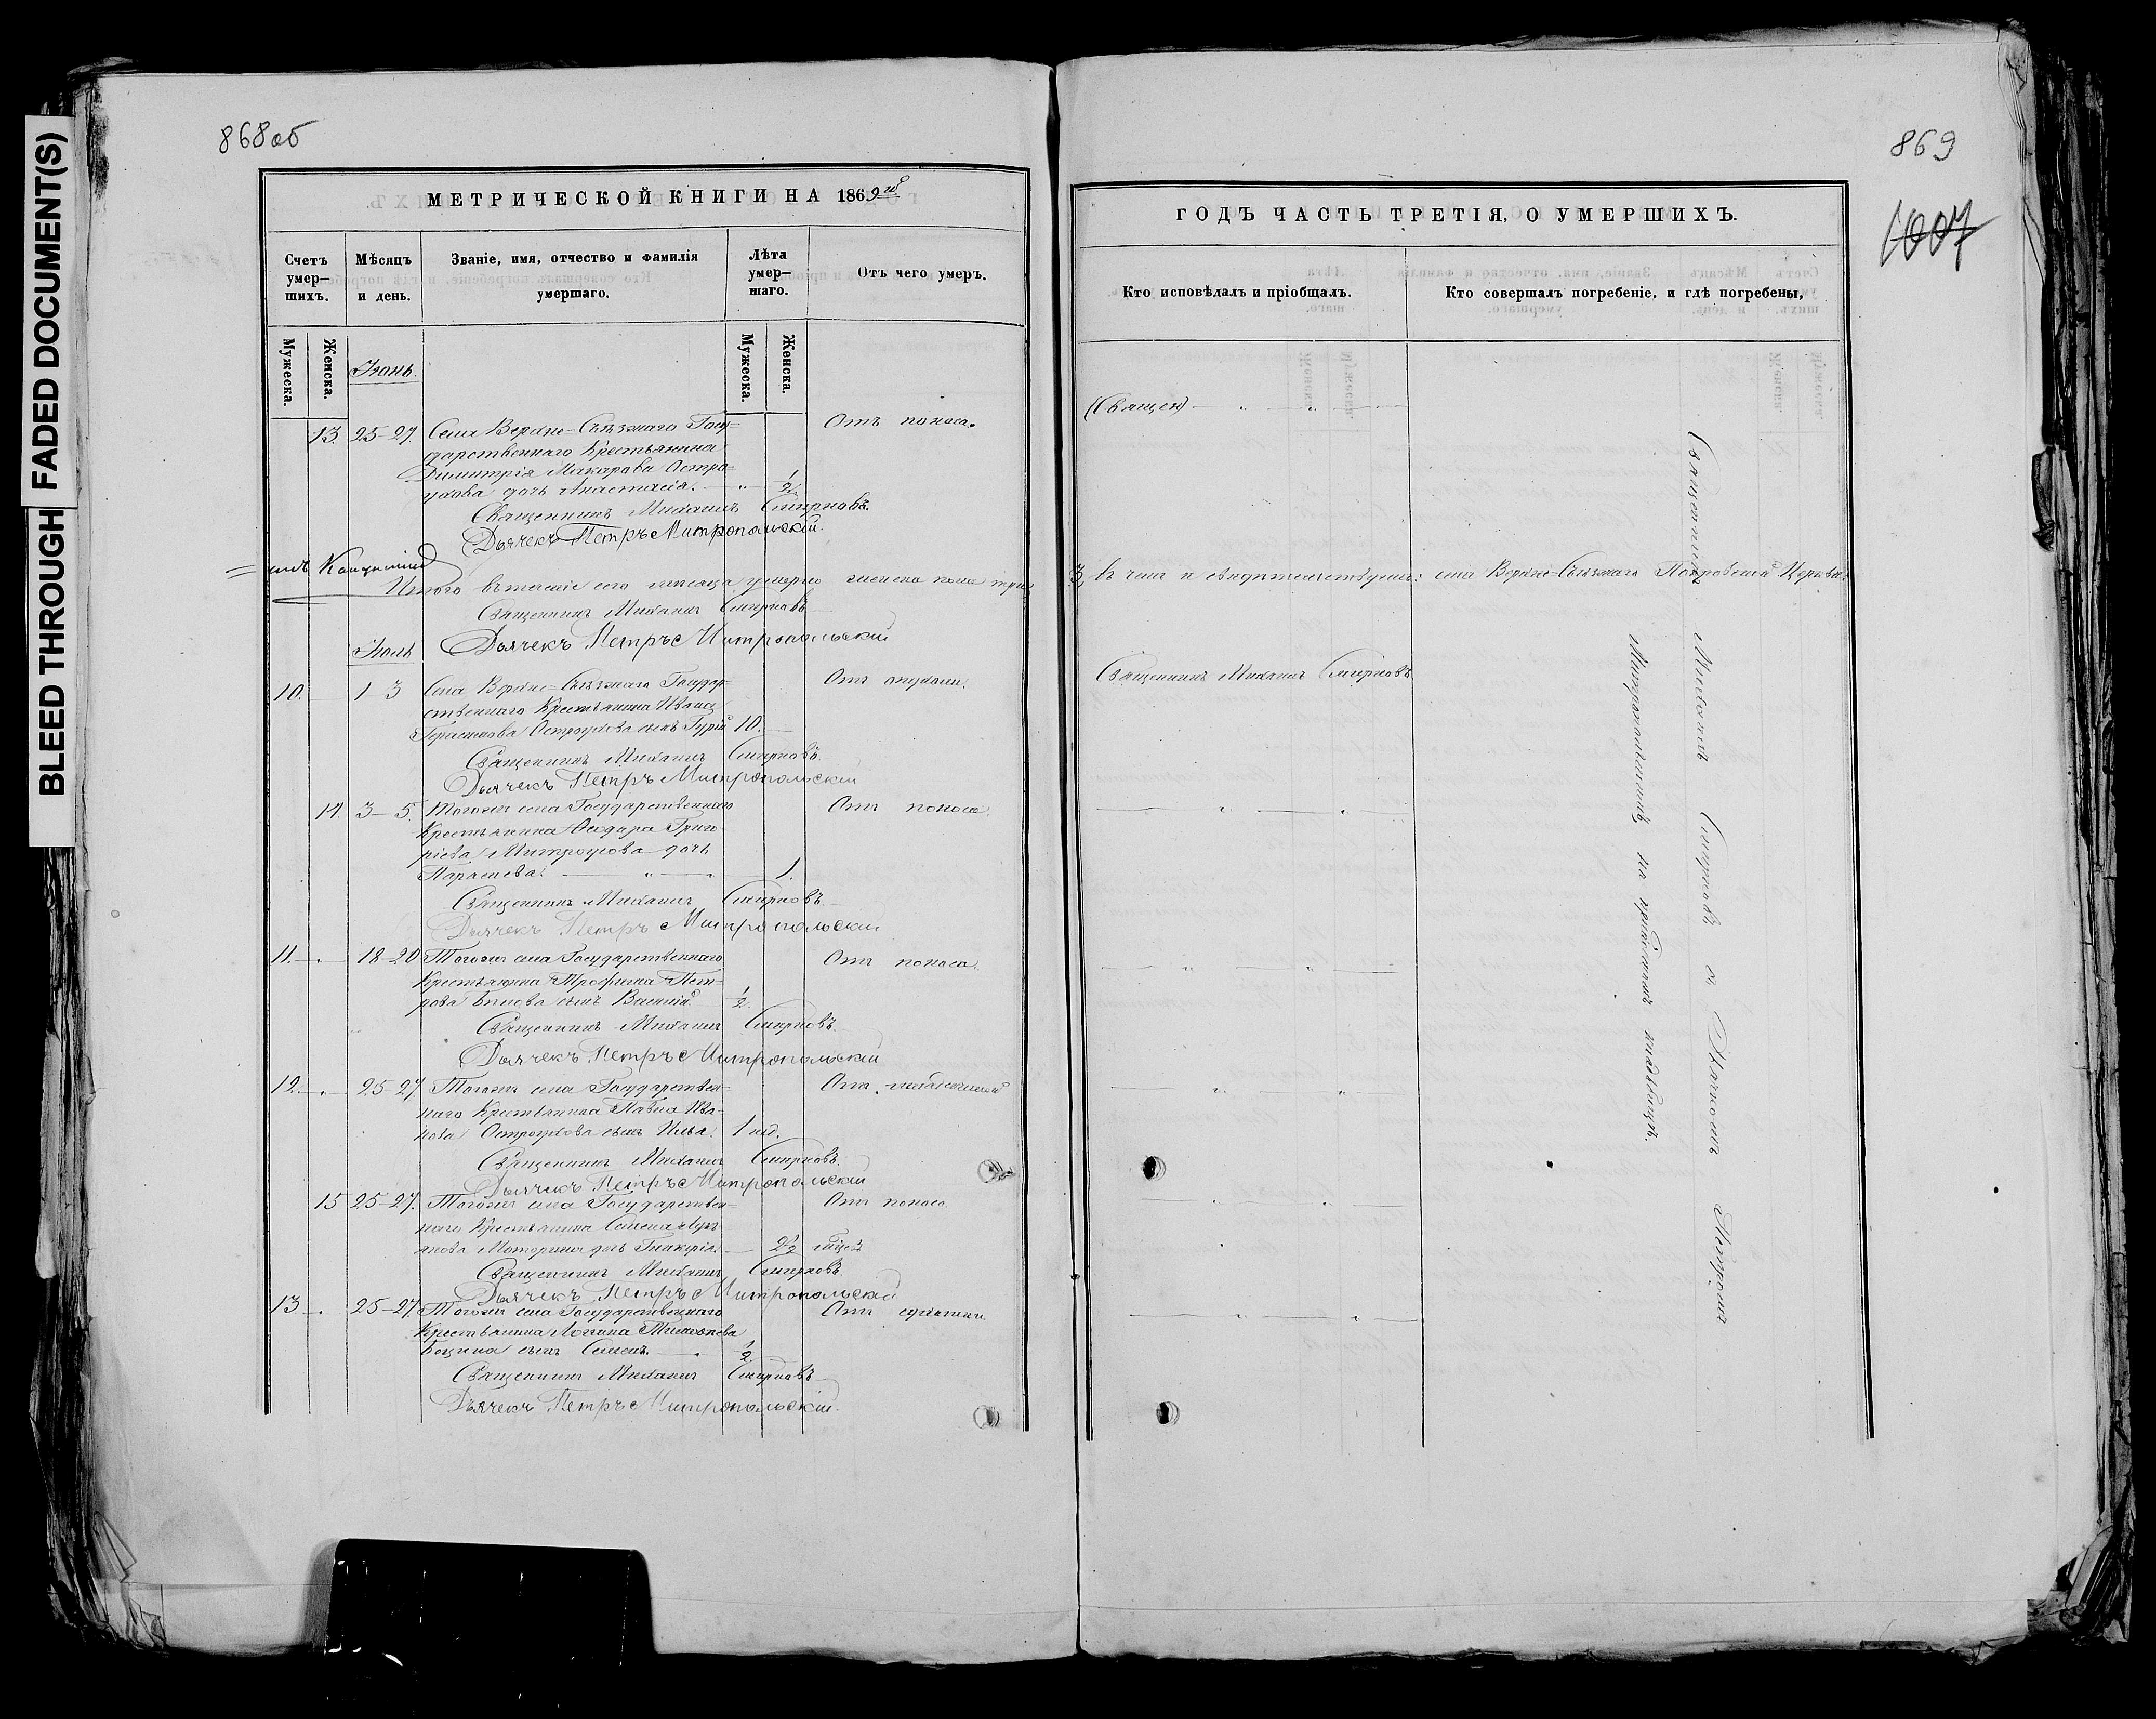 BLEED THROUGH FADED DOCUMENT(S)
868об
МЕТРИЧЕСКОЙ КНИГИ НА 1869
Счетъ умер-шихъ.
Мѣсяцъ и день.
Званіе, имя, отчество и фамилія умершаго.
Лѣта умер-шаго.
Отъ чего умеръ.
Мужеска.
Женска.
Мужеска.
Женска.
Іюнь.
13. 25-27. Села Верхне-Съѣзжаго Госу- Отъ поноса.
дарственнаго Крестьянина
Димитрія Макарова Остро-
ухова дочь Анастасія. 1/2
Священникъ Михаилъ Смирновъ.
Дьячекъ Петръ Митропольскій.
Итого въ теченіе сего мѣсяца умерло женска пола три
Священникъ Михаилъ Смирновъ
Дьячекъ Петръ Митропольскій
Іюль
10. 1 3 Села Верхне-Съѣзжаго Государ- Отъ опухоли.
ственнаго Крестьянина Ивана
Герасимова Остроухова сынъ Гурій 10.
Священникъ Михаилъ Смирновъ.
Дьячекъ Петръ Митропольскій
14. 3-5. Тогоже села Государственнаго Отъ поноса.
Крестьянина Григо-
ріева дочь
Параскева. 1.
Священникъ Михаилъ Смирновъ
Дьячекъ Петръ Митропольскій
11. 18-20 Тогоже села Государственнаго Отъ поноса.
Крестьянина Трофима Пет-
рова сынъ Василій. 1/2.
Священникъ Михаилъ Смирновъ.
Дьячекъ Петръ Митропольскій
12. 25-27 Тогоже села Государствен- Отъ
наго Крестьянина Павла Ива-
нова Остроухова сынъ Илья. 1 нед.
Священникъ Михаилъ Смирновъ.
Дьячекъ Петръ Митропольскій
15 25-27. Тогоже села Государствен- Отъ поноса
наго Крестьянина Семена Лукь-
янова дочь Гликерія. 2 1/2
Священникъ Михаилъ Смирновъ.
Дьячекъ Петръ Митропольскій
13. 25-27 Тогоже села Государственнаго Отъ
Крестьянина
сынъ Семенъ. 1/2
Священникъ Михаилъ Смирновъ
Дьячекъ Петръ Митропольскій.
869
1007
ГОДЪ ЧАСТЬ ТРЕТІЯ, О УМЕРШИХЪ.
Кто исповѣдалъ и пріобщалъ.
Кто совершалъ погребеніе, и гдѣ погребены,
3, въ чемъ и свидѣтельствуемъ: села Верхне-Съѣзжаго Покровской Церкви:
Священникъ Михаилъ Смирновъ
Священникъ Михаилъ Смирновъ съ Дьячкомъ Петромъ
Митропольскимъ, на приходскомъ кладбищѣ.